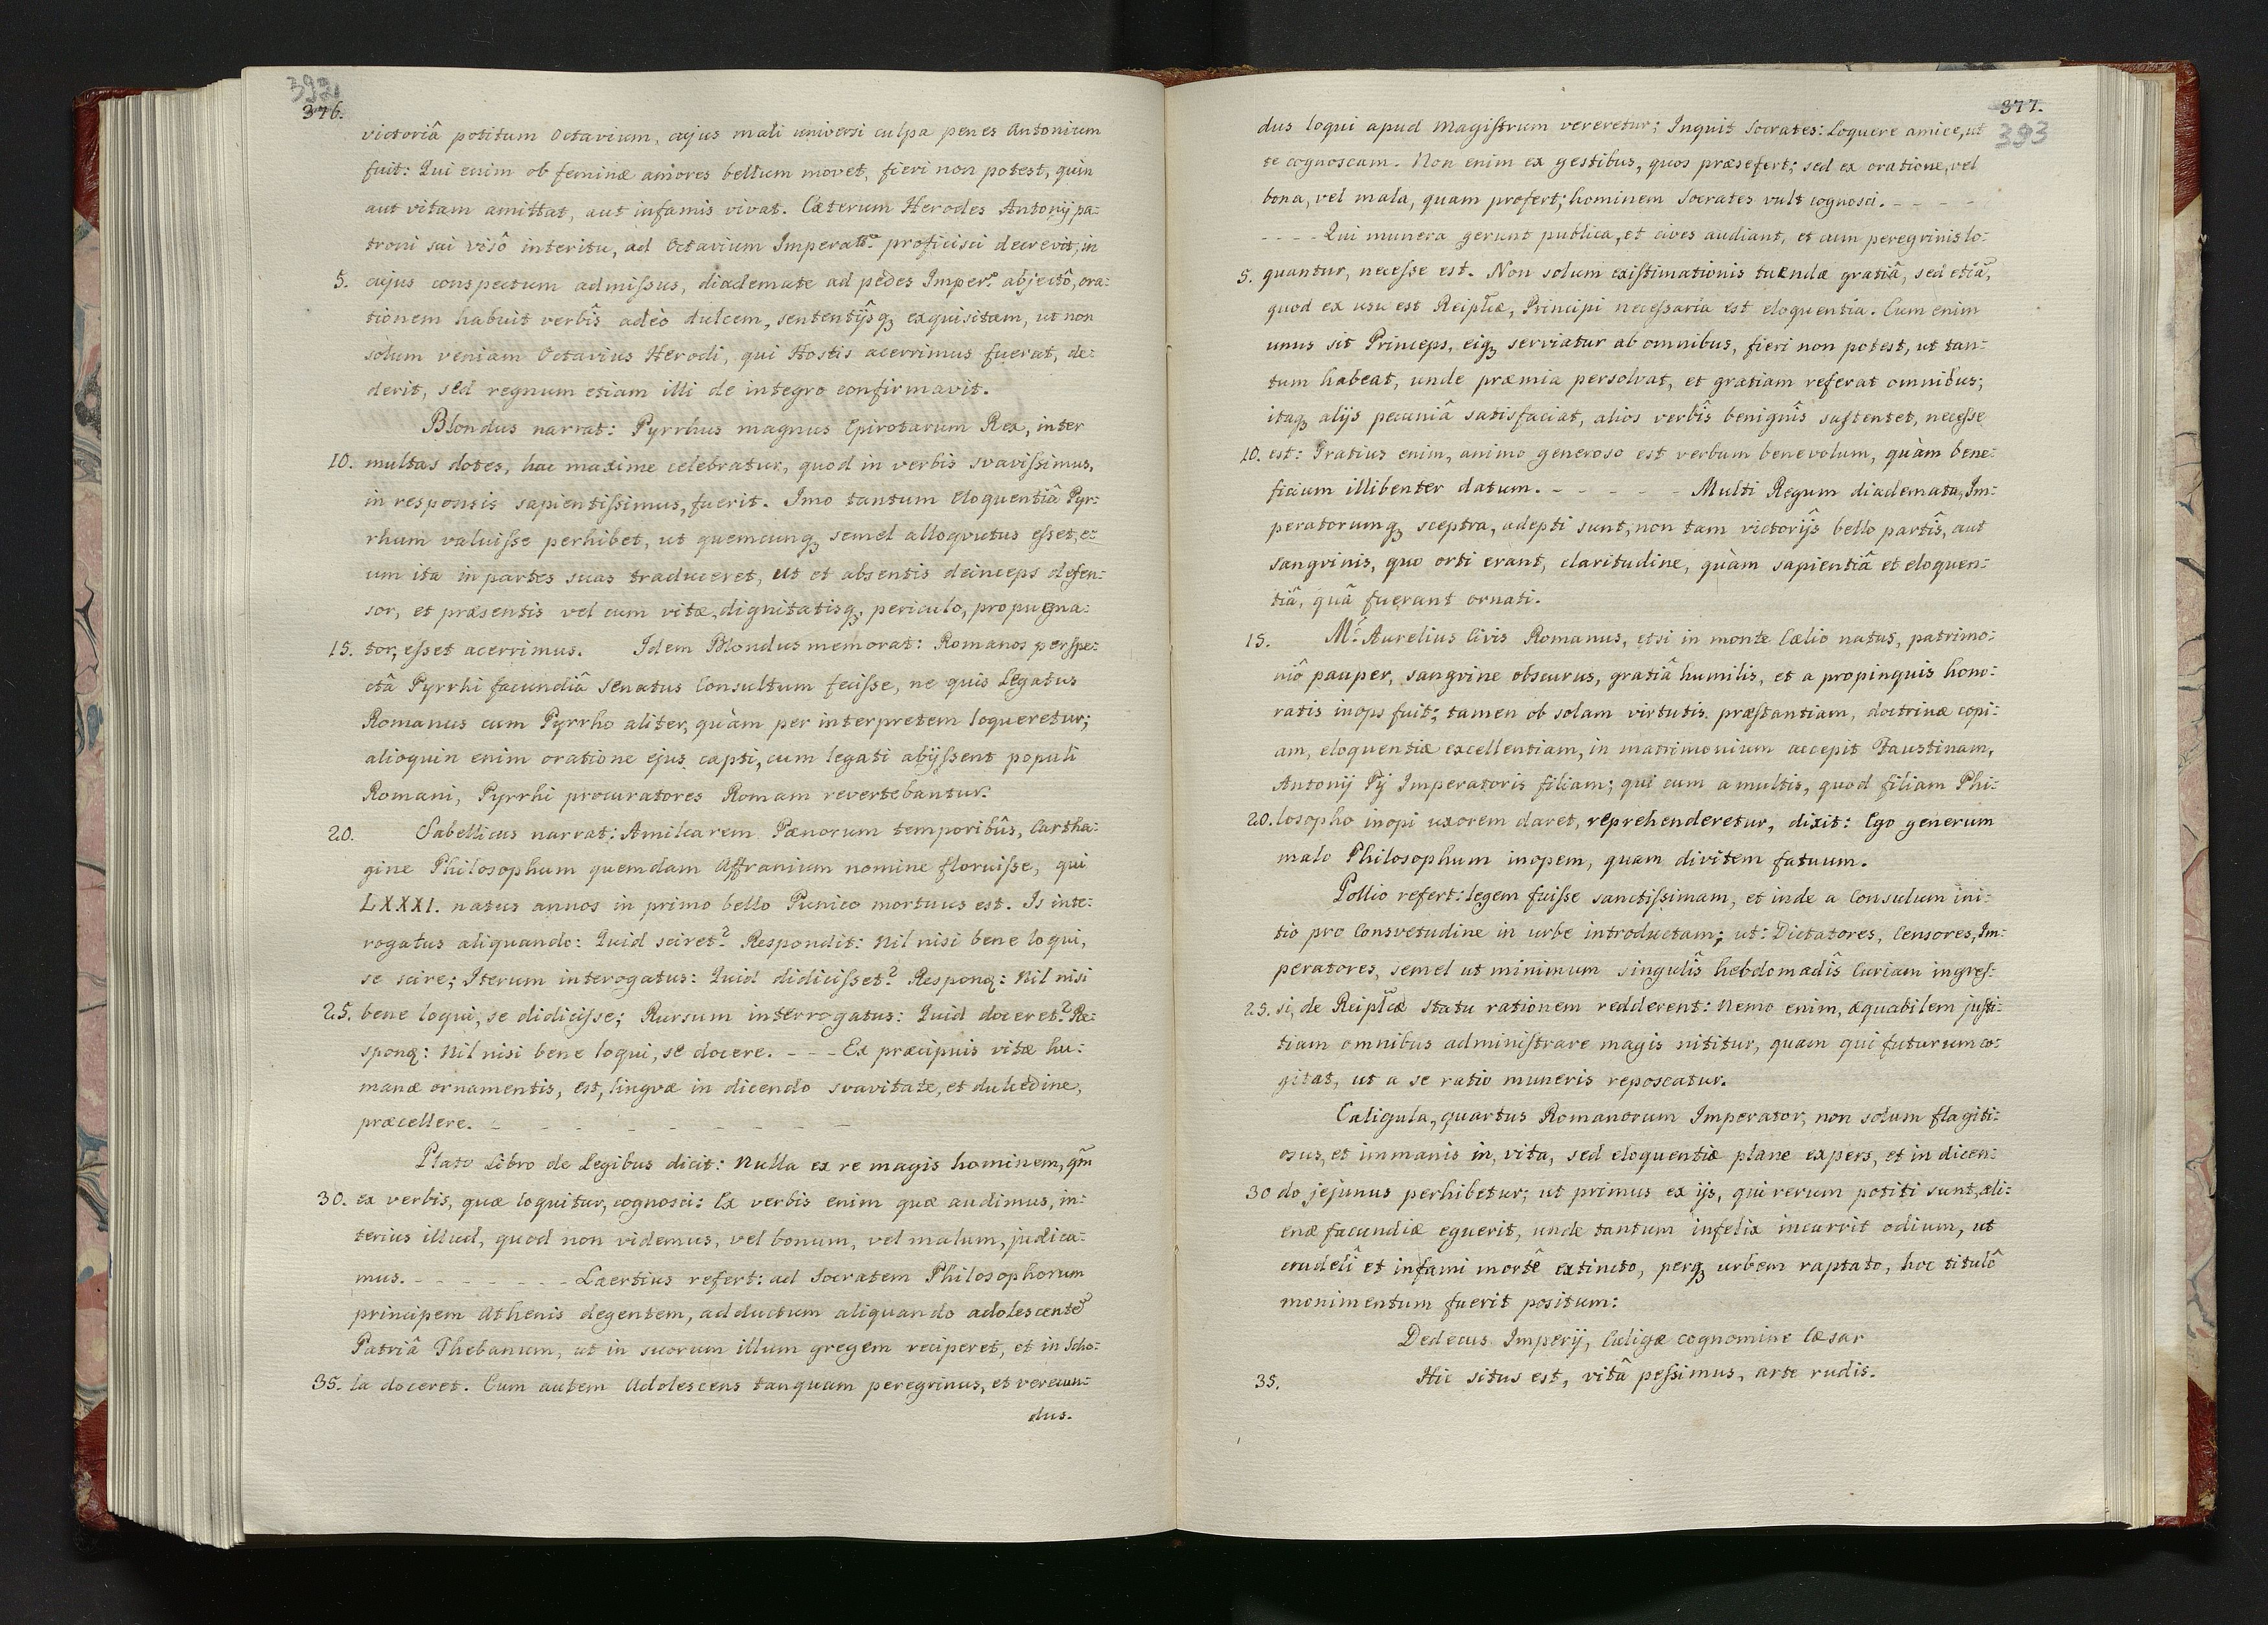 392
376.
victoriâ potitum Octavium, cujus mali universi culpa penes Antonium
fuit: Qui enim ob feminæ amores bellum movet, fieri non potest, quin
aut vitam amittat, aut infamis vivat. Cæterum Herodes Antonij pa:
troni sui visô interitu, ad Octavium Imperatṝ proficisci decrevit; in
5. cujus conspectum admissus, diademate ad pedes Imper: abjectô, ora:
tionem habuit verbîs adeò dulcem, sententijsq; exquisitam, ut non
solum veniam Octavius Herodi, qui Hostis acerrimus fuerat, de:
derit, sed regnum etiam illi de integro confirmavit.
Blondus narrat: Pyrrhus magnus Epirotarum Rex, inter
10. multas dotes, hac maxime celebratur, quod in verbis svavissimus,
in responsis sapientissimus, fuerit. Imo tantum eloquentiâ Pyr:
rhum valuisse perhibet, ut quemcunq; semel alloqvutus esset, e:
um ita in partes suas traduceret, ut et absentis deinceps defen:
sor, et præsentis vel cum vitæ, dignitatisq; periculo, propugna:
15. tor, esset acerrimus. Idem Blondus memorat: Romanos perspe:
ctâ Pyrrhi facundiâ Senatus Consultum fecisse, ne quis Legatus
Romanus cum Pyrrho aliter, quàm per interpretem loqueretur;
alioquin enim oratione ejus capti, cum legati abijssent populi
Romani, Pyrrhi procuratores Romam revertebantur.
20. Sabellicus narrat: Amilcarem Pænorum temporibûs, Cartha:
gine Philosophum quemdam Affranium nomine floruisse, qui
LXXXI. natus annos in primo bello Punico mortuus est. Is inte:
rogatus aliquando: Quid sciret? Respondit: Nil nisi bene loqui,
se scire; Iterum interogatus: Quid didicisset? Responq: Nil nisi
25. bene loqui, se didicisse; Rursum interrogatus: Quid doceret? Re:
sponq: Nil nisi bene loqui, se docere. - - - Ex præcipuis vitæ hu:
manæ ornamentis, est, lingvæ in dicendo svavitate, et dulcedine,
præcellere. - - - - - - - - -
Plato Libro de Legibus dicit: Nulla ex re magis hominem, qm̃
30. ex verbis, quæ loquitur, cognosci: Ex verbis enim quæ audimus, in:
terius illud, quod non videmus, vel bonum, vel malum, judica:
mus. - - - - - - - - Laertius refert: ad Socratem Philosophorum
principem Athenis degentem, adductum aliquando adolescentẽ
Patriâ Thebanum, ut in suorum illum gregem reciperet, et in Scho:
35. la doceret. Cum autem Adolescens tanquam peregrinus, et verecun:
dus.
377.
393
dus loqui apud Magistrum vereretur; Inquit Socrates: Loquere amice, ut
te cognoscam. Non enim ex gestibus, quos præsefert; sed ex oratione, vel
bona, vel mala, quam profert; hominem Socrates vult cognosci. - - - -
- - - - Qui munera gerunt publica, et cives audiant, et cum peregrinis lo:
5. quantur, necesse est. Non solum existimationis tuendæ gratiâ, sed etiã,
quod ex usu est Reipl̃cæ, Principi necessaria est eloquentia. Cum enim
unus sit Princeps, eiq; serviatur ab omnibus, fieri non potest, ut tan:
tum habeat, unde præmia persolvat, et gratiam referat omnibus;
itaq; alijs pecuniâ satisfaciat, alios verbîs benignîs sustentet, necesse
10. est: Gratius enim, animo generoso est verbum benevolum, quàm bene:
ficium illibenter datum. - - - - - - Multi Regum diademata, Im:
peratorumq; sceptra, adepti sunt, non tam victorijs bello partîs, aut
sangvinis, quo orti erant, claritudine, quàm sapientiâ et eloquen:
tiâ, quâ fuerant ornati.
15. M: Aurelius Civis Romanus, etsi in monte Cælio natus, patrimo:
niô pauper, sangvine obscurus, gratiâ humilis, et a propinquis hono:
ratis inops fuit; tamen ob solam virtutis præstantiam, doctrinæ copi:
am, eloquentiæ excellentiam, in matrimonium accepit Faustinam,
Antonij Pij Imperatoris filiam; qui cum a multis, quod filiam Phi:
20. losopho inopi uxorem daret, reprehenderetur, dixit: Ego generum
malo Philosophum inopem, quam divitem fatuum.
Pollio refert: legem fuisse sanctissimam, et inde a Consulum ini:
tio pro Consvetudine in urbe introductam; ut: Dictatores, Censores, Im:
peratores, semel ut minimum singulîs hebdomadîs Curiam ingres:
25. si, de Reipl̃cæ statu rationem redderent: Nemo enim, æquabilem justi:
tiam omnibus administrare magis nititur, quam qui futurum co:
gitat, ut a se ratio muneris reposcatur.
Caligula, quartus Romanorum Imperator, non solum flagiti:
osus, et immanis in vita, sed eloquentiæ plane expers, et in dicen:
30 do jejunus perhibetur; ut primus ex ijs, qui rerum potiti sunt, ali:
enæ facundiæ eguerit, unde tantum infelix incurrit odium, ut
crudelî et infami mortê extincto, perq; urbem raptato, hoc titulô
monimentum fuerit positum:
Dedecus Imperij, Caligæ cognomine Cæsar
35. Hic situs est, vitâ pessimus, arte rudis.